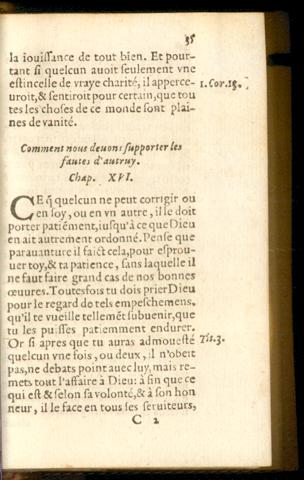 35
la iouissance de tout bien. Et pour-
tant si quelcun auoit seulement vne
estincelle de vraye charité, il apperce-
uroit, & sentiroit pour certain, que tou
tes les choses de ce monde sont plai-
nes de vanité.
1. Cor. 13.
Comment nous deuons supporter les
fautes d'autruy.
Chap. XVI.
CE q̃ quelcun ne peut corrigir ou
en soy, ou en vn autre, il le doit
porter patiẽment, iusqu'à ce que Dieu
en ait autrement ordonné. Pense que
parauanture il faict cela, pour esprou-
uer toy, & ta patience, sans laquelle il
ne faut faire grand cas de nos bonnes
œuures. Toutesfois tu dois prier Dieu
pour le regard de tels empeschemens,
qu'il te vueille tellemẽt subuenir, que
tu les puisses patiemment endurer.
Or si apres que tu auras admouesté
quelcun vne fois, ou deux, il n'obeit
pas, ne debats point auec luy, mais re-
mets tout l'affaire à Dieu: à fin que ce
qui est & selon sa volonté, & à son hon
neur, il le face en tous ses seruiteurs,
Tit. 3.
C 2